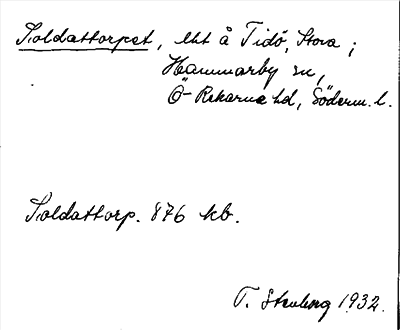 Soldattorpet, lht å Tidö, Stora;
Hammarby sn,
Ö-Rekarne hd, Söderm. l.
Soldattorp. 876 kb.
T. Stenberg 1932.